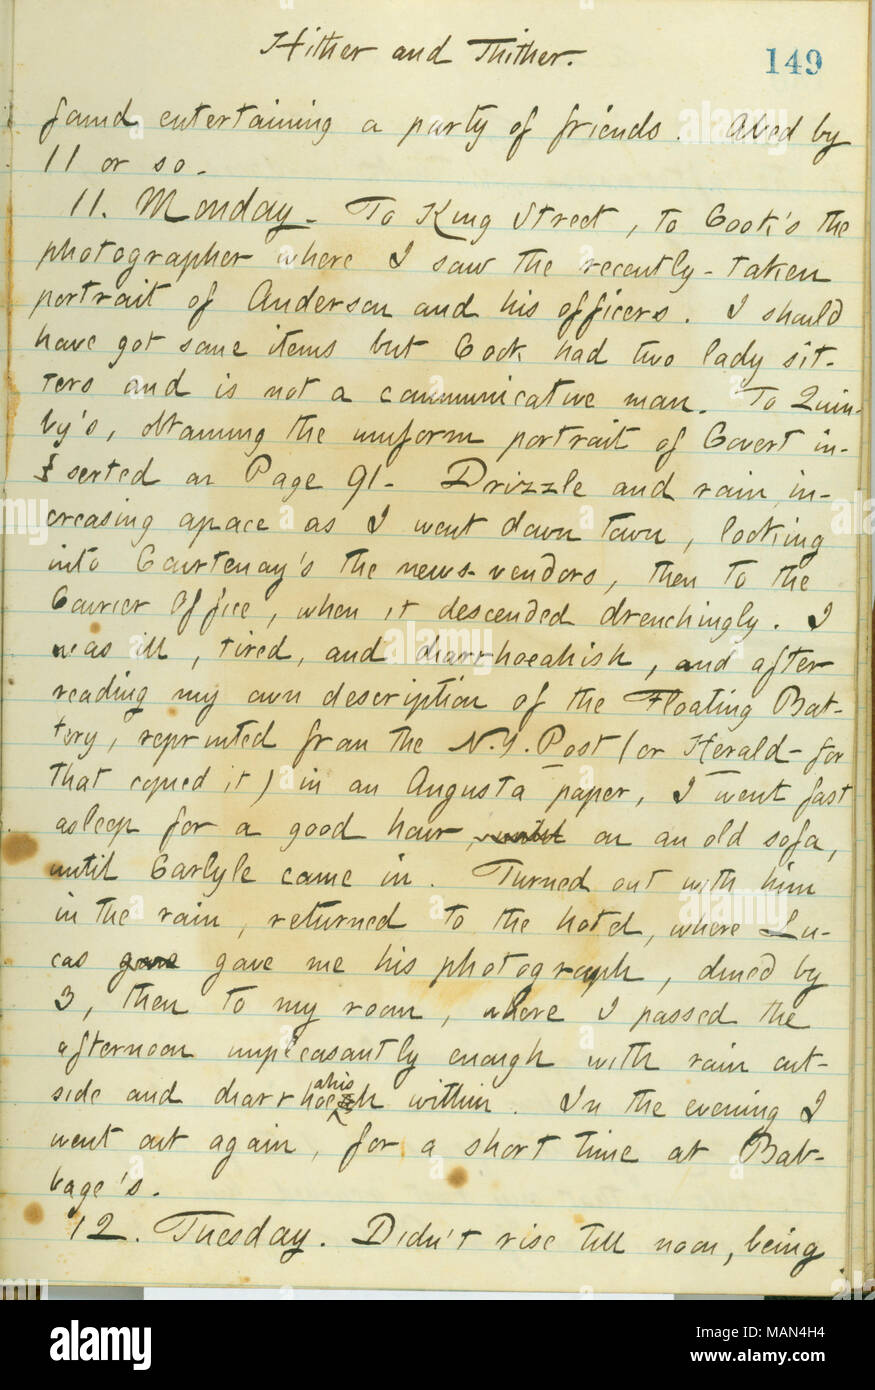 Hither and Thither.
149
found entertaining a party of friends. Abed by
11 or so.
11. Monday. To King Street, to Cook's the
photographer where I saw the recently-taken
portrait of Anderson and his officers. I should
have got some items but Cook had two lady sit-
ters and is not a communicative man. To Quin-
by's, obtaining the uniform portrait of Covert in-
serted on Page 91. Drizzle and rain in-
creasing apace as I went down town, looking
into Courtenay's the news-vendors, then to the
Courier Office, when it descended drenchingly. I
was ill, tired, and diarrhoeahish, and after
reading my own description of the Floating Bat-
tery, reprinted from the N.Y. Post (or Herald - for
that copied it) in an Augusta paper, I went fast
asleep for a good hour, until on an old sofa,
until Carlyle came in. Turned out with him
in the rain, returned to the hotel, where Lu-
cas gave gave me his photograph, dined by
3, then to my room, where I passed the
afternoon unpleasantly enough with rain out-
side and diarrhoeahish within. In the evening I
went out again, for a short time at Bab-
bage's.
12. Tuesday. Didn't rise till noon, being
alamy
Image ID: MAN4H4
www.alamy.com